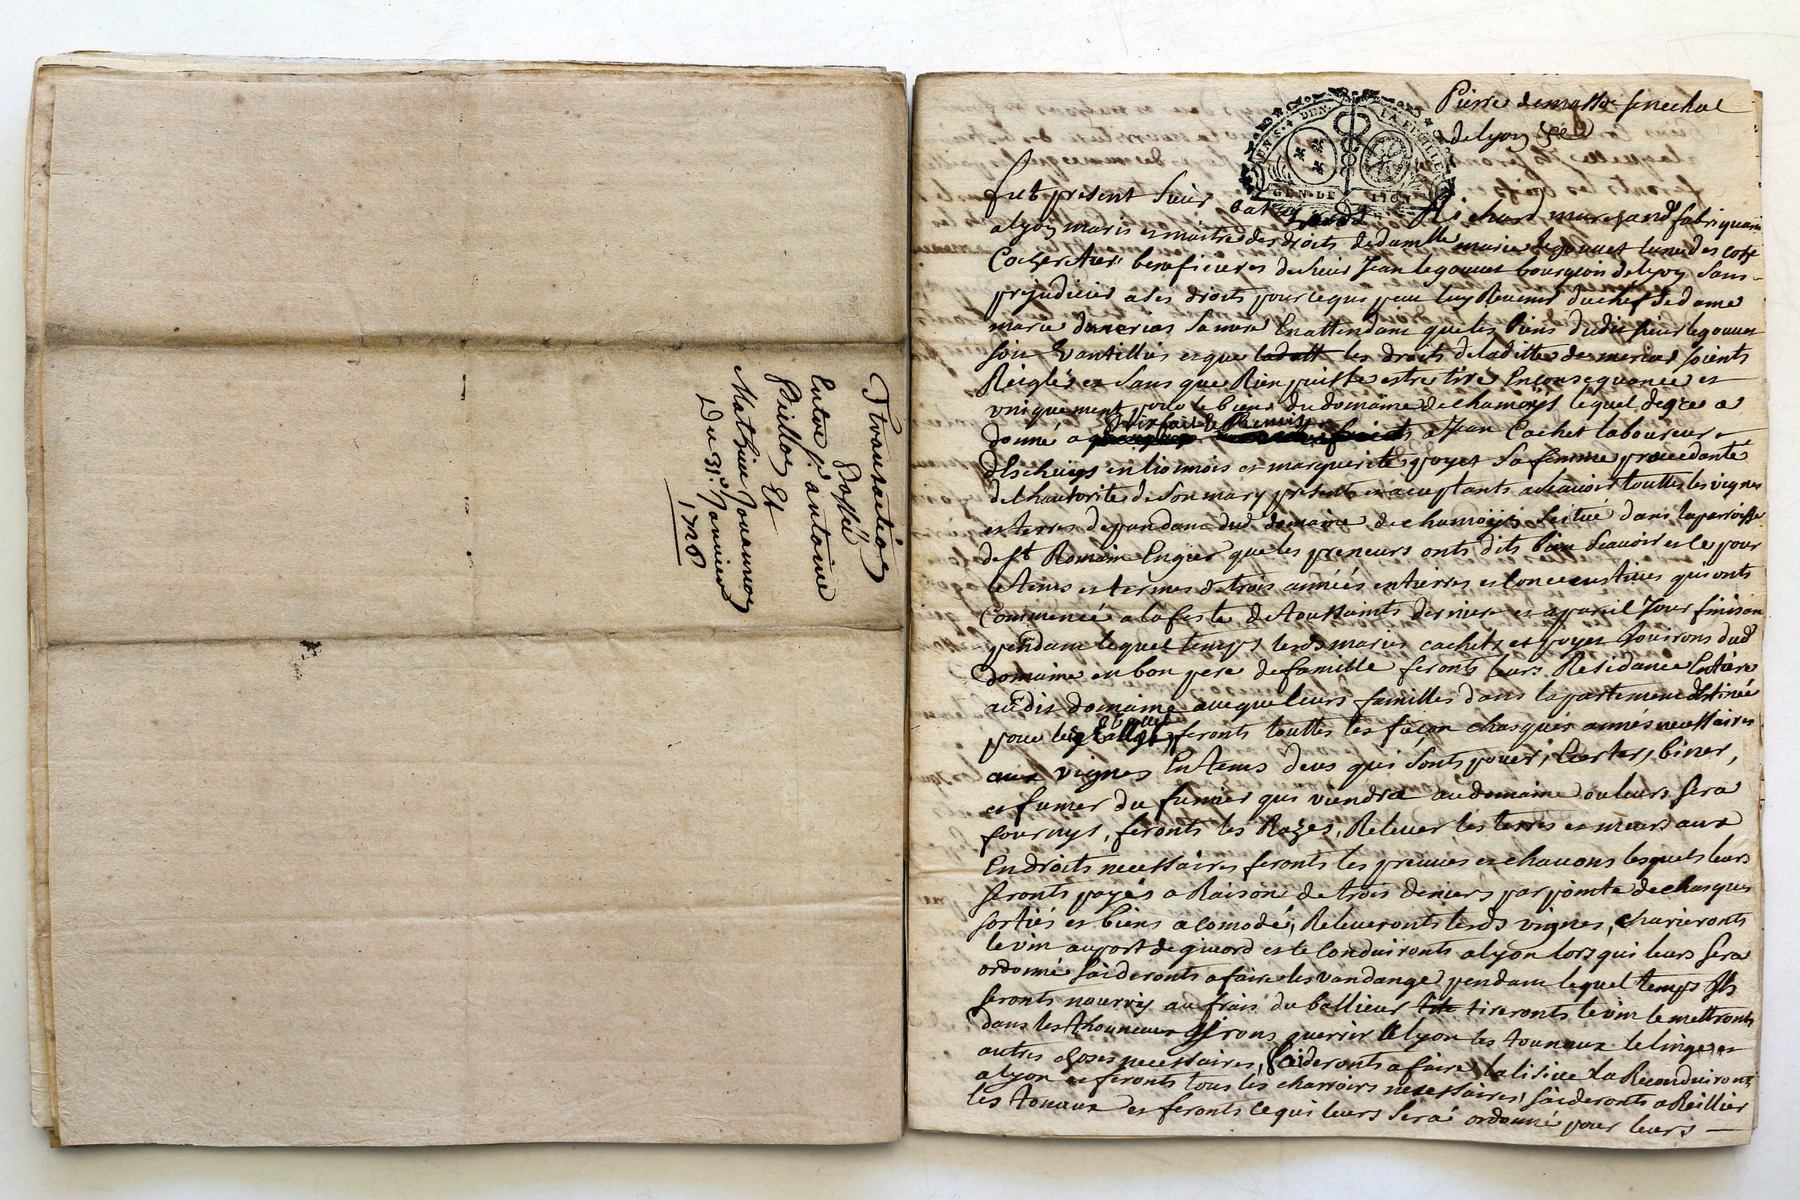 Transaction
passée
Entre Sr. antoine
Pillot Et
Mathieu Jouannon
Du 31e. Janvier
1728
Pierre de masso senechal
de lyon
GEN. DE LION
fut present sieur Richard marchand fabriquant
a lyon maris et maitre des droits de damlle marie legouuet lune des
beneficieres de sieur Jean legouuet bourgeois de lyon sans
prejudicier a ses droits pour ce qui peut luy Reuenir du chef de dame
marie sa mere En attendant que les biens dudit sieur legouuet
soit Euantillés et que les droits de laditte soients
Reiglés et sans que Rien puisse estre tiré En consequance et
uniquement pour le biens du domaine de chamoÿs lequel degré a
donné a a Jean Cachet laboureur
en lionnois et marguerite poyet sa femme procedante
de lhautorité de son mary presents et acceptants asseauoir touttes les vignes
et terres dependant dud domaine de chamoÿs situé dans la paroisse
de st Romain En gier que les preneurs onts dits bien seauoir et ce pour
le tems et termes de trois années entierres et consecutiues qui onts
Commencé a la feste de toussaints dernier et a pareil Jour finiron
pendant lequel temps lesds mariés cachet et poyet Jouirons dud
domaine en bon pere de famille feronts leurs Residance Entiere
audit domaine auecque leurs familles dans lapartement destinée
pour feronts touttes les façon chasques années necessaires
aux vignes En tems deus qui sonts pouer, biner,
et fumer du fumier qui viendra au domaine ou leurs sera
fournys, feronts les Razes, Releuer les terres et meurs aux
Endroits necessaires feronts les preuues et chauons lesquels leurs
seronts payés a Raison de trois deniers par pointe de chasques
sortiés et biens acomodé, Releueronts lesds vignes, charieronts
le vin au port de giuord et le Conduironts a lyon lors qui leurs sera
ordonné saideronts a faire les vandange pendant lequel temps Ils
seronts nourris au frais du ballieur tireronts le vin le mettronts
dans les thouneaux Iront querrir a lyon les tounaux le linge et
autres choses necessaires, saideronts a faire la lisiue la Reconduironts
a lyon et feronts tous les charroirs necessaires, saideronts a Reillier
les tonaux et feronts ce qui leurs sera ordonné pour leurs